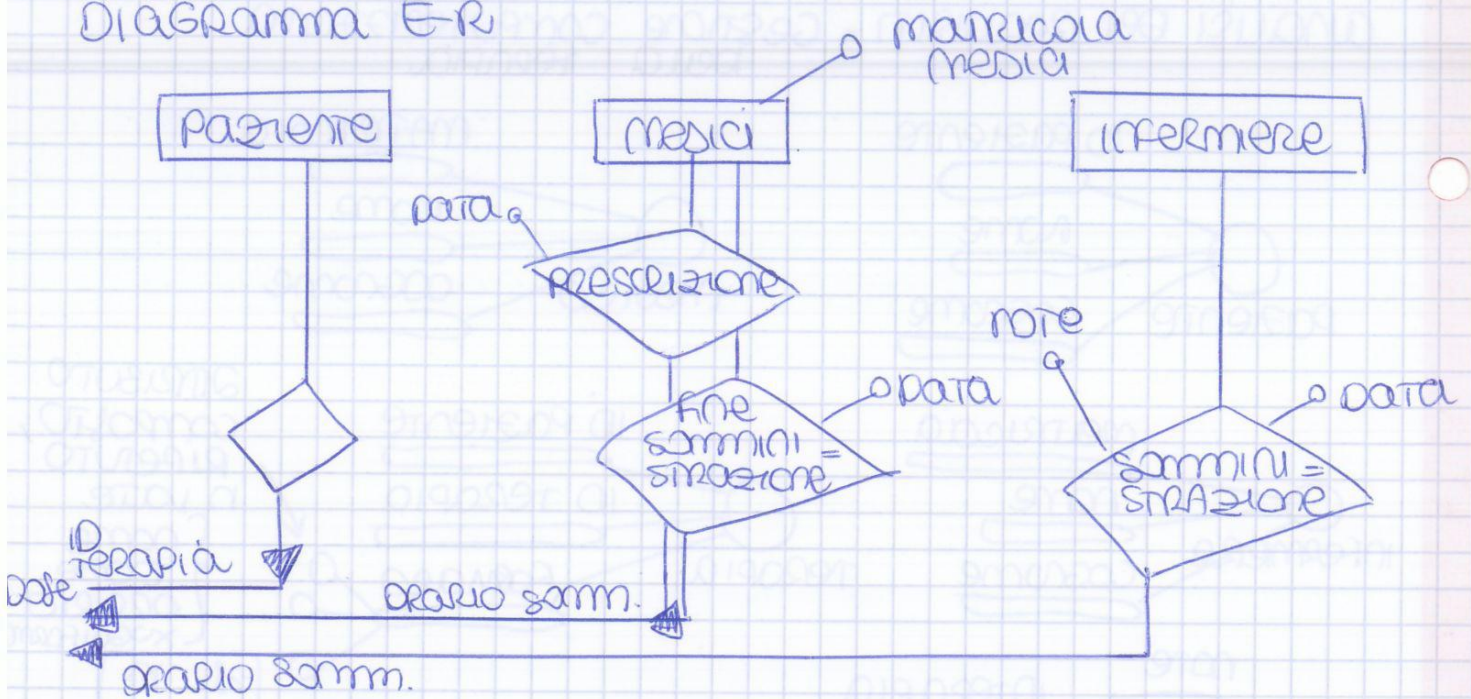 DIAGRAMMA E-R
MATRICOLA
MEDICI
PAZIENTE
MEDICI
INFERMIERE
DATA
PRESCRIZIONE
NOTE
FINE
SOMMINI=
STRAZIONE
DATA
SOMMINI=
STRAZIONE
DATA
ID
TERAPIA
DOSE
ORARIO SOMM.
ORARIO SOMM.